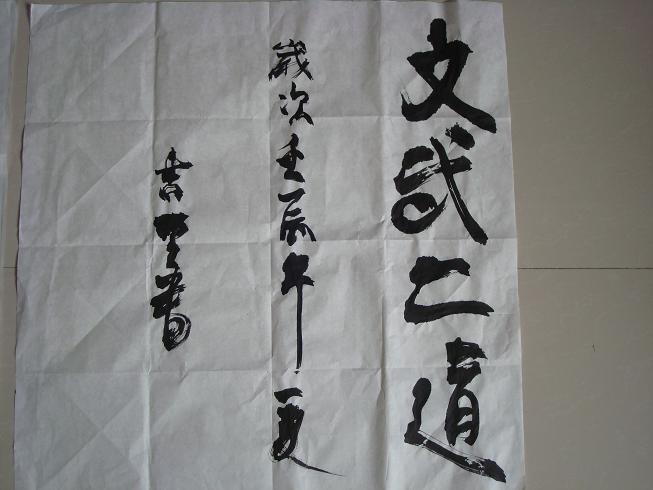 文武二道
歲次壬辰年夏
吉書